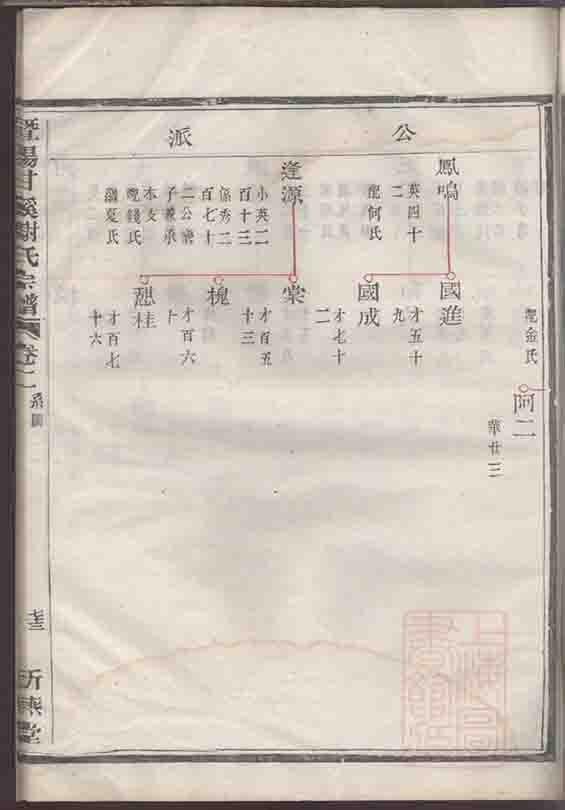 公派
配金氏
阿二
華廿三
鳳鳴
英四十
二
配何氏
國進
才五十
九
國成
才七十
二
逢源
小英二
百十三
係秀二
百七十
二公
子兼承
本支
配錢氏
夏氏
棠
才百五
十三
槐
才百六
十
桂
才百七
十六
暨陽甘溪謝氏宗譜
卷二
系圖